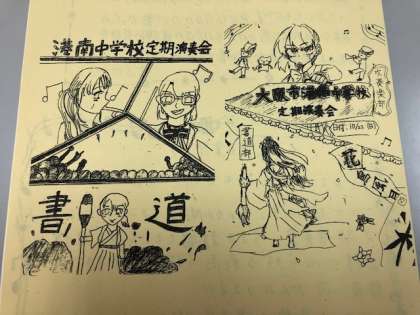 港南中学校定期演奏会
書道
吹奏楽部
大阪市港南中学校
定期演奏会
書道部